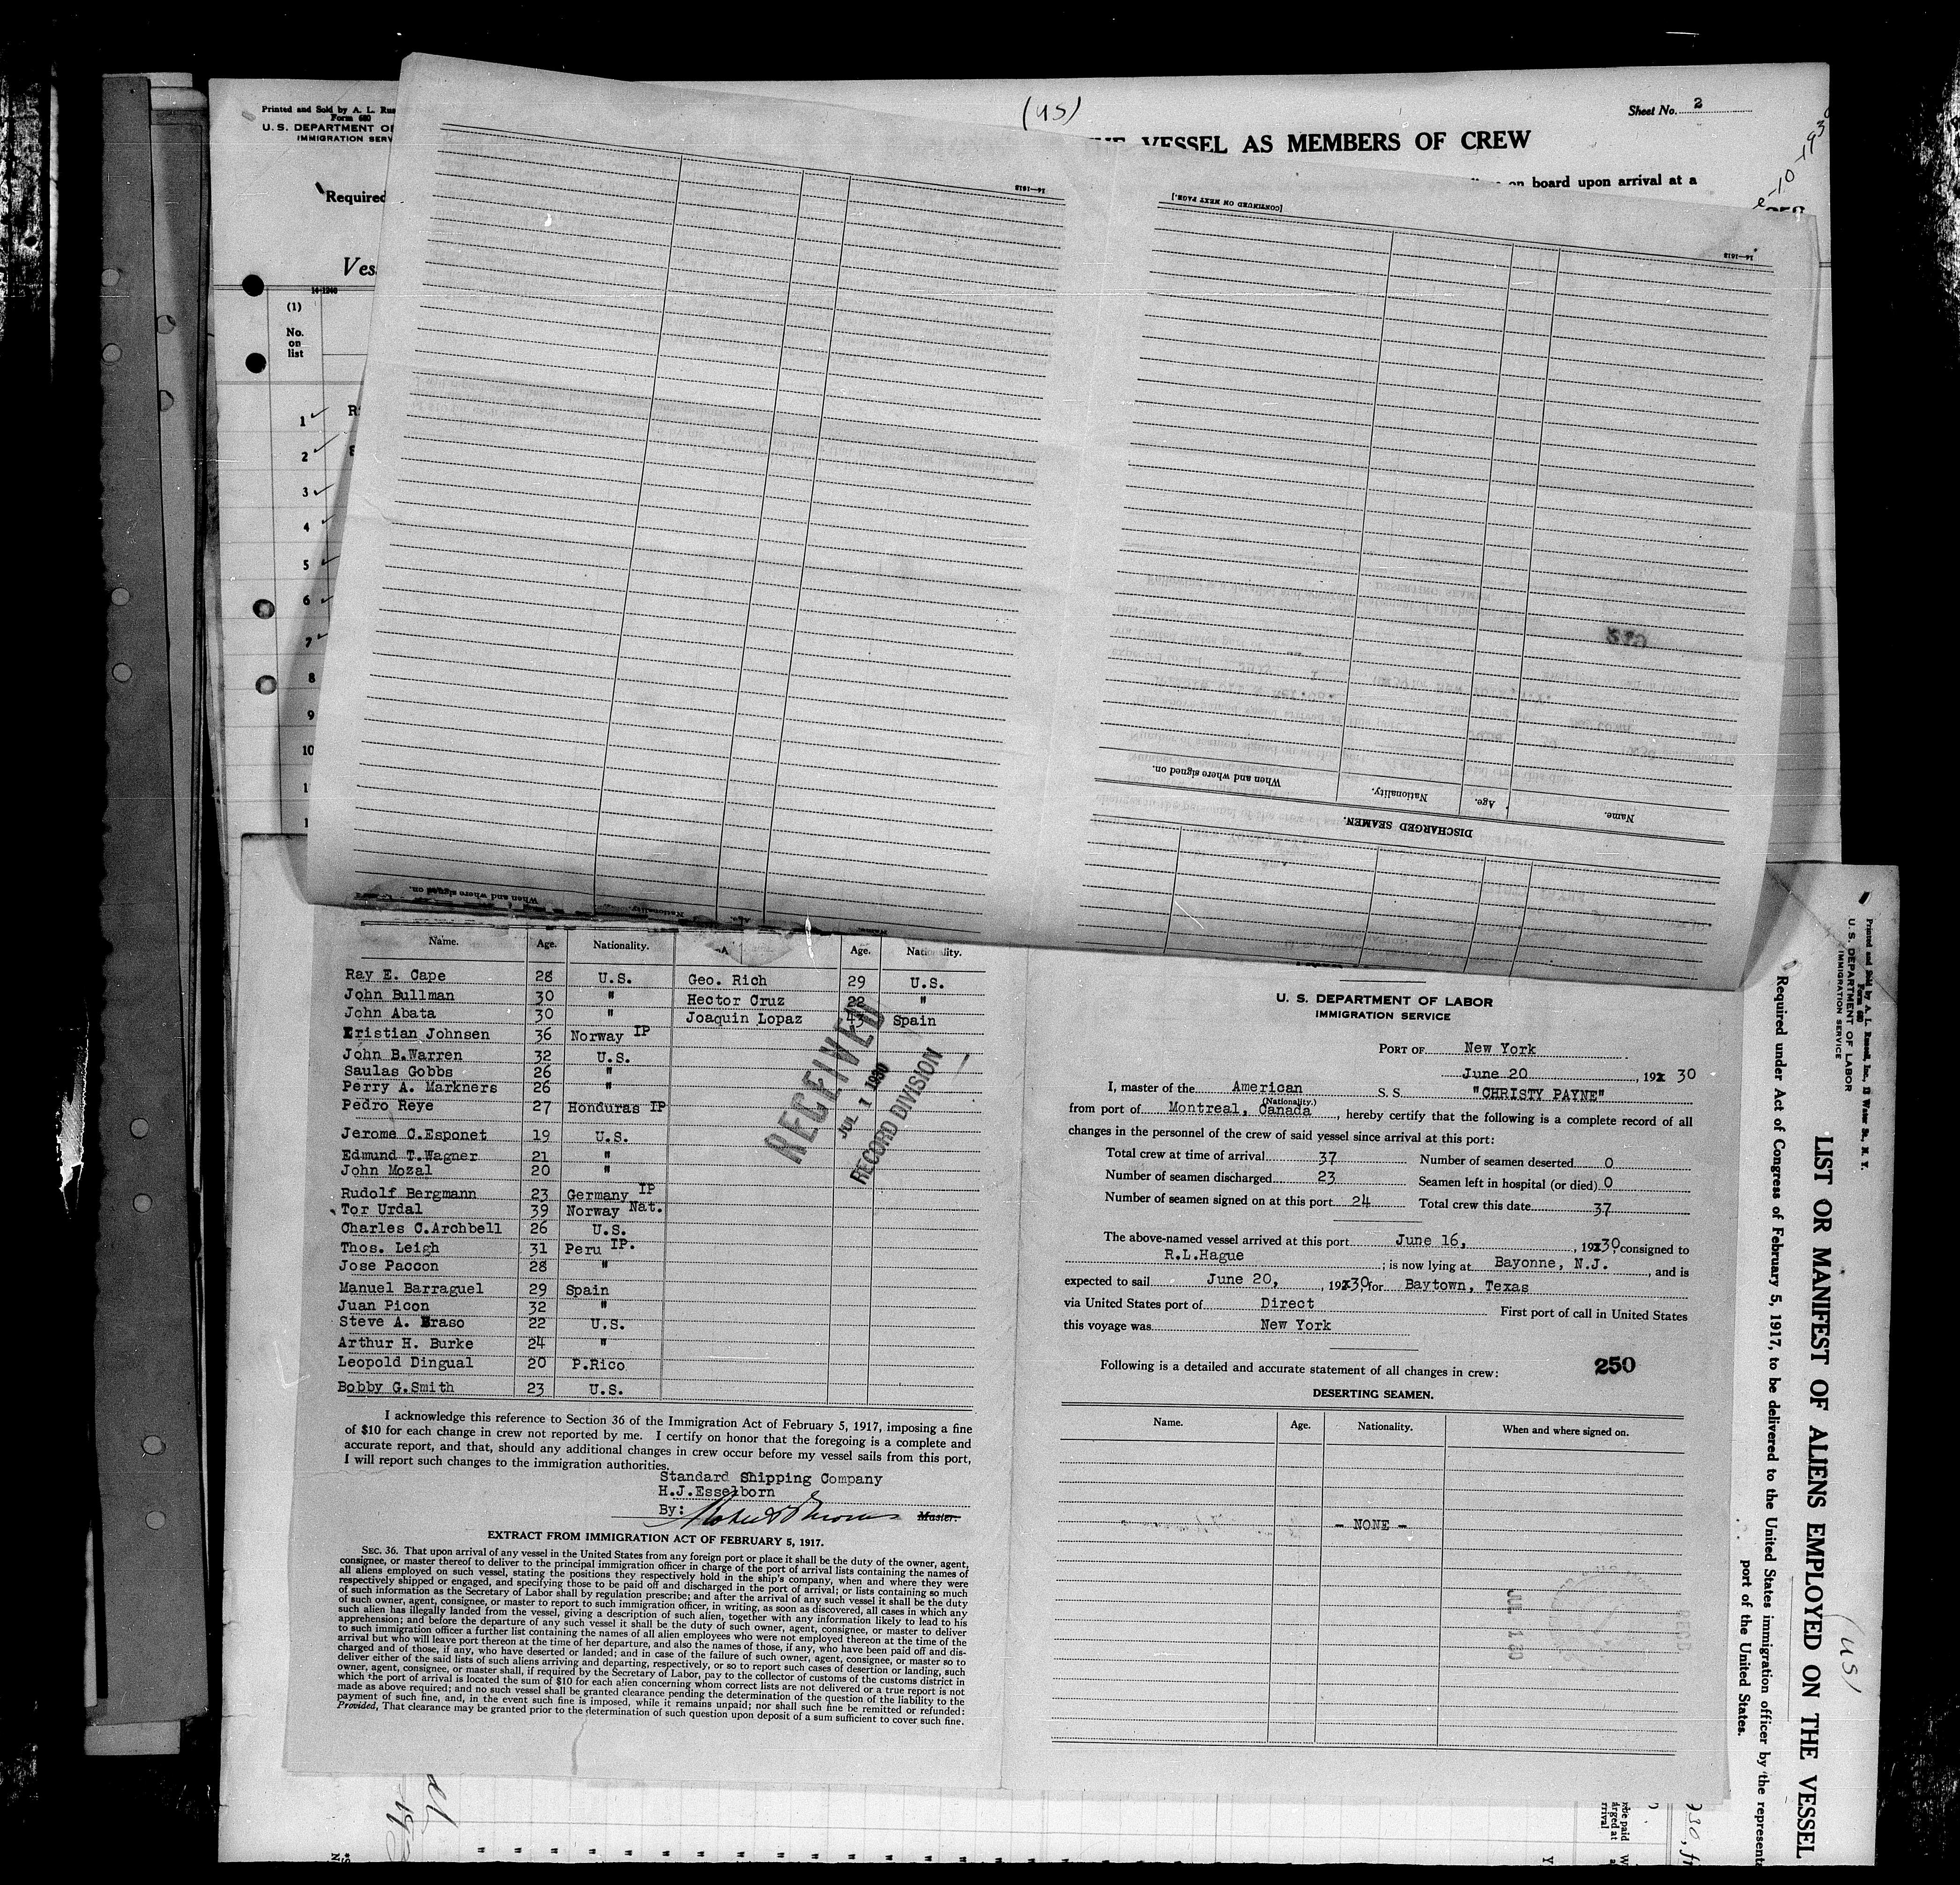 Printed and Sold by A. L.
Form 680
U. S. DEPARTMENT OF
IMMIGRATION SERV
(US)
Sheet No. 2
VESSEL AS MEMBERS OF CREW
Required
on board upon arrival at a
Ves
14-1240
(1)
No.
on
list
1
2
3
4
5
6
7
8
9
10
16—1618
[CONTINUED ON NEXT PAGE.]
16—1618
When and where signed on.
Nationality.
Age.
Name.
DISCHARGED SEAMEN.
When and where signed on.
Nationality.
Age.
Name. Age. Nationality. Age. Nationality.
Ray E. Cape 28 U.S. Geo. Rich 29 U.S.
John Bullman 30 " Hector Cruz 22 "
John Abata 30 " Joaquin Lopaz 43 Spain
Kristian Johnsen 36 Norway IP
John B.Warren 32 U.S.
Saulas Gobbs 26 "
Perry A. Markners 26 "
Pedro Reye 27 Honduras IP
Jerome C.Esponet 19 U.S.
Edmund T.Wagner 21 "
John Mozal 20 "
Rudolf Bergmann 23 Germany IP
Tor Urdal 39 Norway Nat.
Charles C.Archbell 26 U.S.
Thos. Leigh 31 Peru IP.
Jose Paccon 28 "
Manuel Barraguel 29 Spain
Juan Picon 32 "
Steve A. Eraso 22 U.S.
Arthur H. Burke 24 "
Leopold Dingual 20 P.Rico
Bobby G.Smith 23 U.S.
RECEIVED
JUL 1 1930
RECORD DIVISION
I acknowledge this reference to Section 36 of the Immigration Act of February 5, 1917, imposing a fine
of $10 for each change in crew not reported by me. I certify on honor that the foregoing is a complete and
accurate report, and that, should any additional changes in crew occur before my vessel sails from this port,
I will report such changes to the immigration authorities.
Standard Shipping Company
H.J.Esselborn
By: Master.
EXTRACT FROM IMMIGRATION ACT OF FEBRUARY 5, 1917.
SEC. 36. That upon arrival of any vessel in the United States from any foreign port or place it shall be the duty of the owner, agent,
consignee, or master thereof to deliver to the principal immigration officer in charge of the port of arrival lists containing the names of
all aliens employed on such vessel, stating the positions they respectively hold in the ship's company, when and where they were
respectively shipped or engaged, and specifying those to be paid off and discharged in the port of arrival; or lists containing so much
of such information as the Secretary of Labor shall by regulation prescribe; and after the arrival of any such vessel it shall be the duty
of such owner, agent, consignee, or master to report to such immigration officer, in writing, as soon as discovered, all cases in which any
such alien has illegally landed from the vessel, giving a description of such alien, together with any information likely to lead to his
apprehension; and before the departure of any such vessel it shall be the duty of such owner, agent, consignee, or master to deliver
to such immigration officer a further list containing the names of all alien employees who were not employed thereon at the time of the
arrival but who will leave port thereon at the time of her departure, and also the names of those, if any, who have been paid off and dis-
charged and of those, if any, who have deserted or landed; and in case of the failure of such owner, agent, consignee, or master so to
deliver either of the said lists of such aliens arriving and departing, respectively, or so to report such cases of desertion or landing, such
owner, agent, consignee, or master shall, if required by the Secretary of Labor, pay to the collector of customs of the customs district in
which the port of arrival is located the sum of $10 for each alien concerning whom correct lists are not delivered or a true report is not
made as above required; and no such vessel shall be granted clearance pending the determination of the question of the liability to the
payment of such fine, and, in the event such fine is imposed, while it remains unpaid; nor shall such fine be remitted or refunded:
Provided, That clearance may be granted prior to the determination of such question upon deposit of a sum sufficient to cover such fine.
U. S. DEPARTMENT OF LABOR
IMMIGRATION SERVICE
PORT OF New York
June 20, 192 30
I, master of the American S. S. "CHRISTY PAYNE"
(Nationality.)
from port of Montreal, Canada, hereby certify that the following is a complete record of all
changes in the personnel of the crew of said vessel since arrival at this port:
Total crew at time of arrival 37 Number of seamen deserted 0
Number of seamen discharged 23 Seamen left in hospital (or died) 0
Number of seamen signed on at this port 24 Total crew this date 37
The above-named vessel arrived at this port June 16, 19230, consigned to
R.L.Hague; is now lying at Bayonne, N.J., and is
expected to sail June 20, 19230, for Baytown, Texas
via United States port of Direct First port of call in United States
this voyage was New York
Following is a detailed and accurate statement of all changes in crew: 250
DESERTING SEAMEN.
Name. Age. Nationality. When and where signed on.
- NONE -
JUL 1 30
Printed and Sold by A. L. Russell, Inc., 12 Water St., N. Y.
Form 680
U. S. DEPARTMENT OF LABOR
IMMIGRATION SERVICE
LIST OR MANIFEST OF ALIENS EMPLOYED ON THE VESSEL
Required under Act of Congress of February 5, 1917, to be delivered to the United States immigration officer by the represent
port of the United States.
(US)